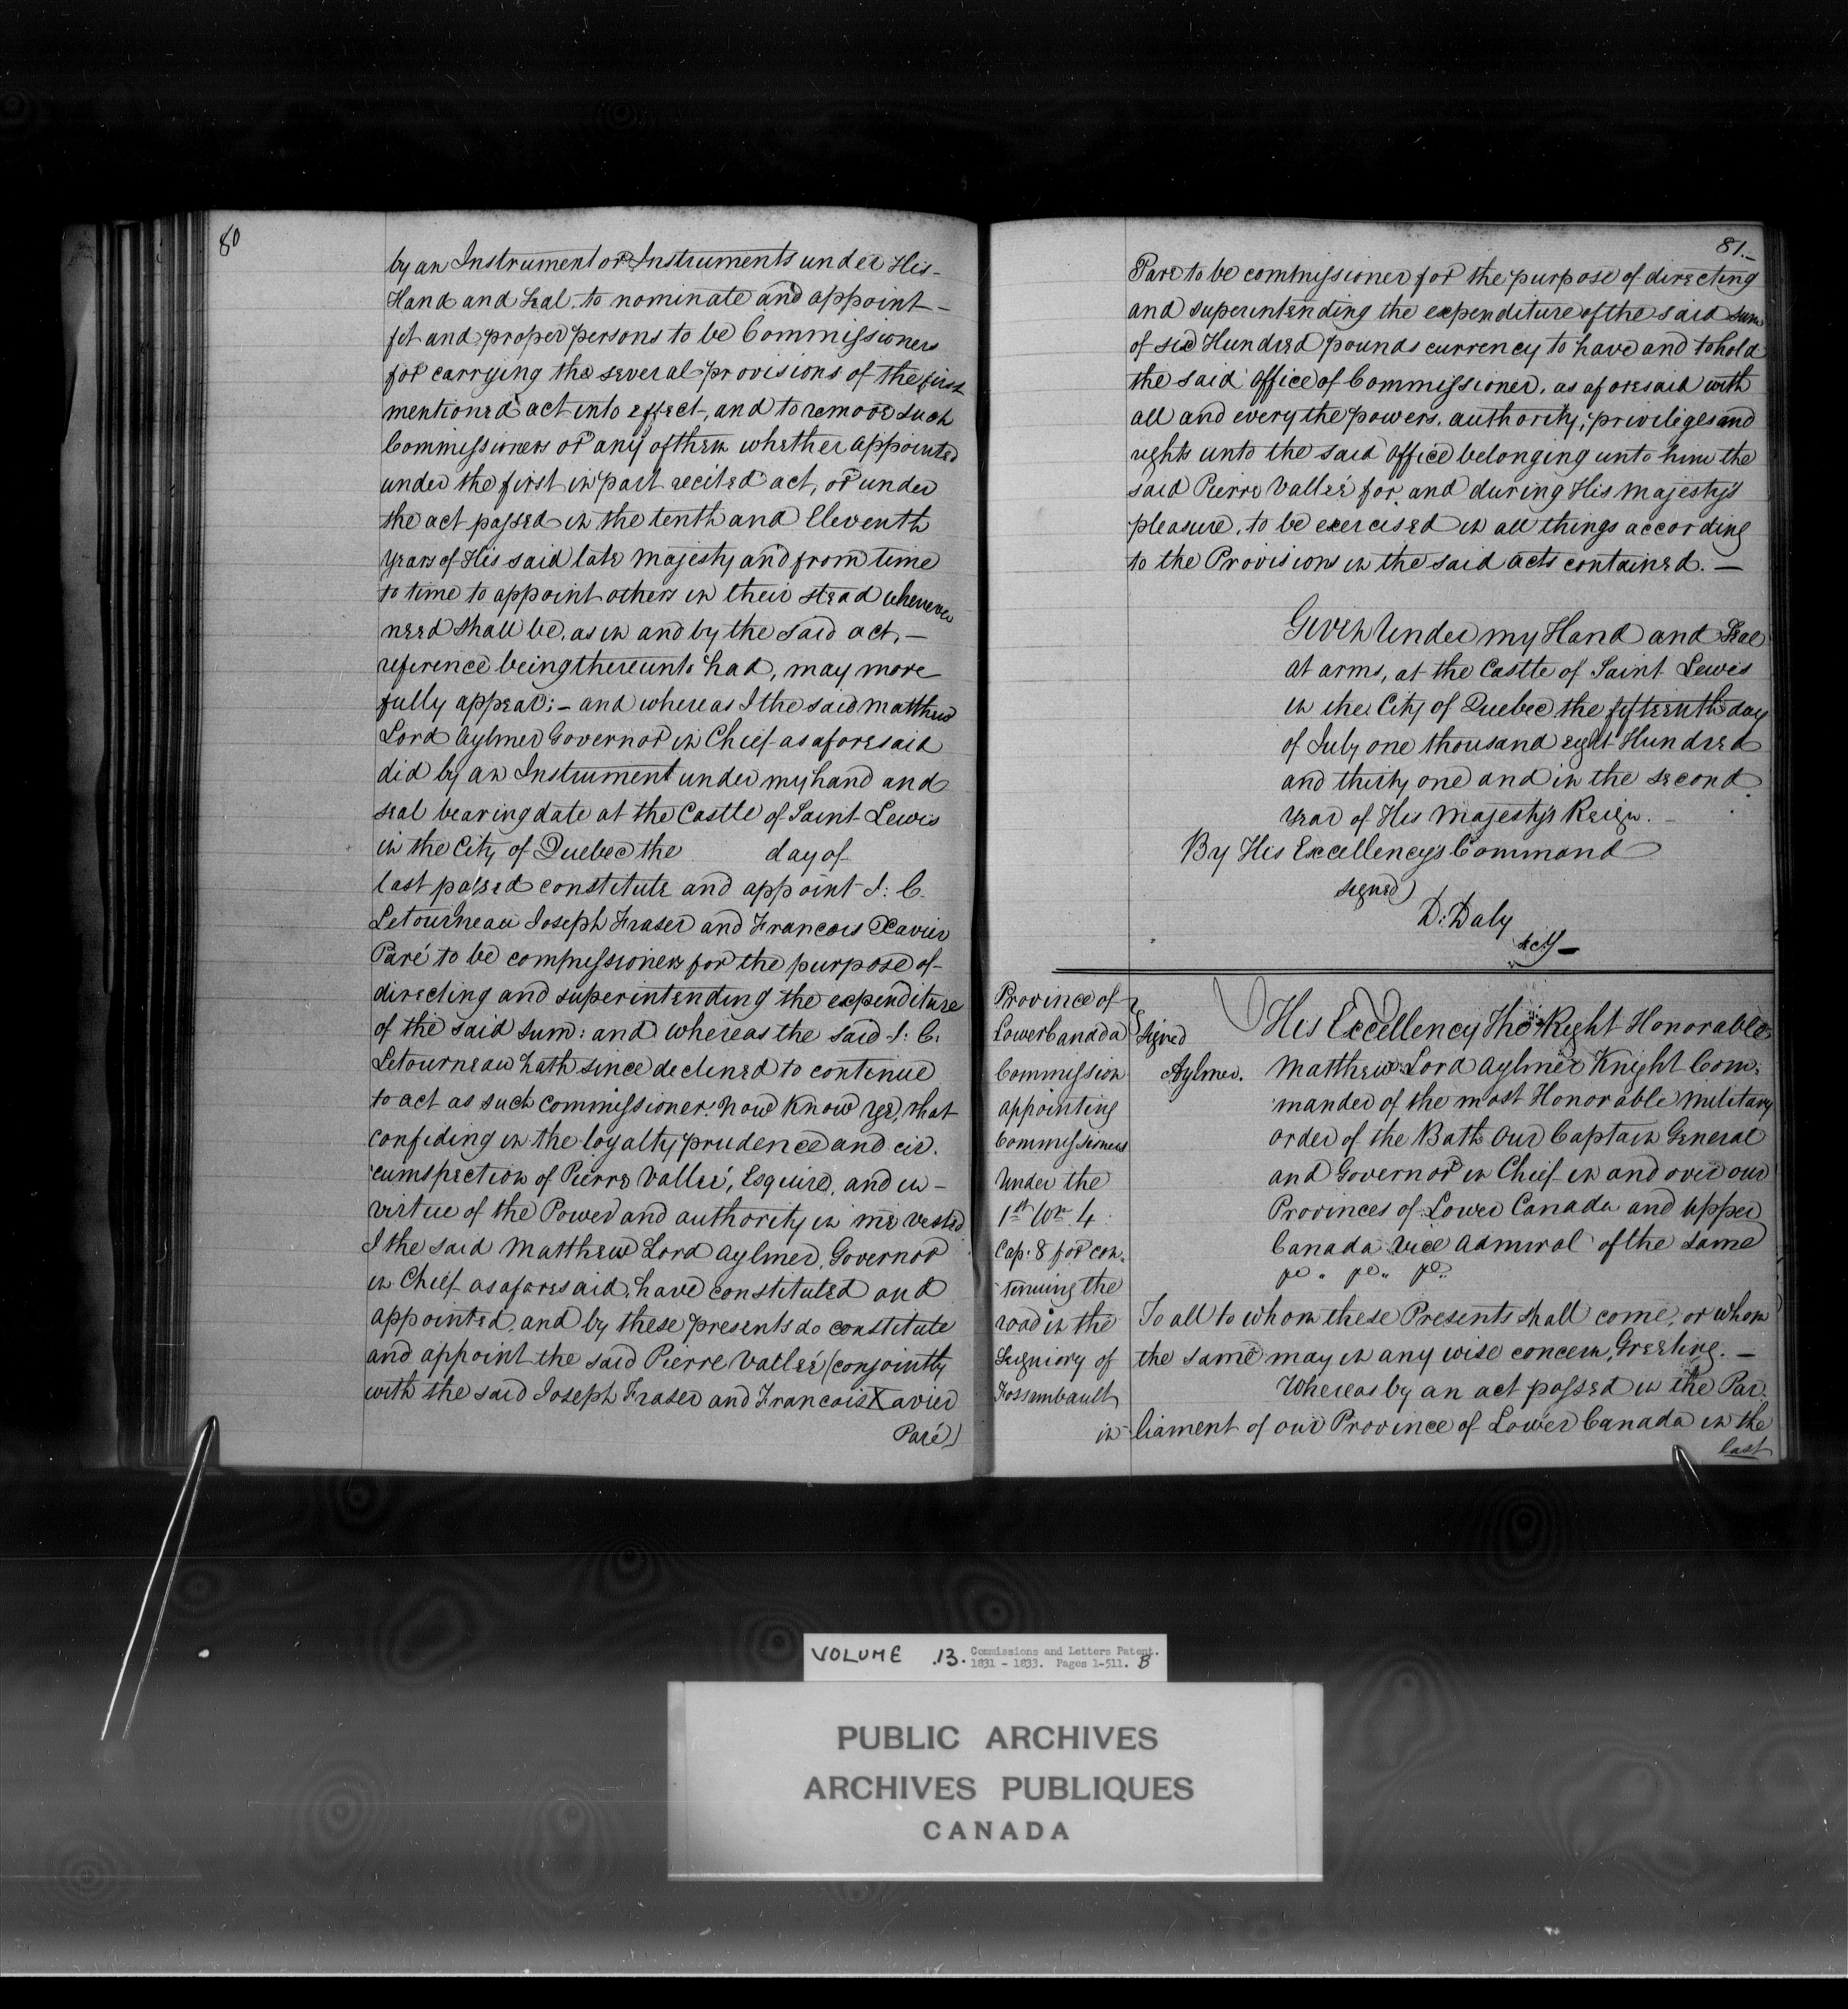 80
by an Instrument or Instruments under His-
Hand and Seal. to nominate and appoint-
fit and proper persons to be Commissioners
for carrying the several provisions of the first
mentioned act into effect, and to remove such
Commissioners or any of them whether appointed
under the first in part recited act, or under
the act passed in the tenth and Eleventh
years of His said late Majesty and from time
to time to appoint others in their stead whenever
need shall be, as in and by the said act,-
reference being thereunto had, may more
fully appear;- and whereas I the said Matthew
Lord Aylmer Governor in Chief as aforesaid
did by an Instrument under my hand and
seal bearing date at the Castle of Saint Lewis
in the City of Quebec the day of
last passed constitute and appoint J: C.
Letourneau Joseph Fraser and Francois Xavier
Paré to be commissioners for the purpose of-
directing and superintending the expenditure
of the said sum: and whereas the said J: C:
Letourneau hath since declined to continue
to act as such commissioner: now Know ye, that
confiding in the loyalty prudence and cir.
cumspection of Pierre Vallée, Esquire, and in-
virtue of the Power and authority in me vested
I the said Matthew Lord Aylmer, Governor
in Chief as aforesaid, have constituted and
appointed, and by these presents do constitute
and appoint the said Pierre Vallée (conjointly
with the said Joseph Fraser and Francois Xavier
Paré)
81.-
Pare to be commissioner for the purpose of directing
and superintending the expenditure of the said sum
of six Hundred pounds currency to have and to hold
the said office of Commissioner, as aforesaid with
all and every the powers, authority, priviliges and
rights unto the said office belonging unto him the
said Pierre Vallée for and during His Majesty's
pleasure, to be exercised in all things according
to the Provisions in the said acts contained.-
Given Under my Hand and Seal
at arms, at the Castle of Saint Lewis
in the City of Quebec the fifteenth day
of July one thousand eight Hundred
and thirty one and in the second
year of His Majesty's Reign.-
By His Excellency's Command
signed)
D: Daly
Secy-
Province of
Lower Canada
Commission
appointing
Commissioners
Under the
1st Wm 4
Cap: 8 for con-
tinuing the
road in the
Signiory of
Fossambault
in
Signed
Aylmer.
His Excellency The Right Honorable
Matthew Lord Aylmer Knight Com:
mander of the most Honorable Military
order of the Bath Our Captain General
and Governor in Chief in and over our
Provinces of Lower Canada and Upper
Canada Vice Admiral of the same
&c " &c " &c.
To all to whom these Presents shall come, or whom
the same may in any wise concern, Greeting.-
Whereas by an act passed in the Par.
liament of our Province of Lower Canada in the
last
VOLUME 13. Commissions and Letters Patent.
1831 - 1833. Pages 1-511. B
PUBLIC ARCHIVES
ARCHIVES PUBLIQUES
CANADA